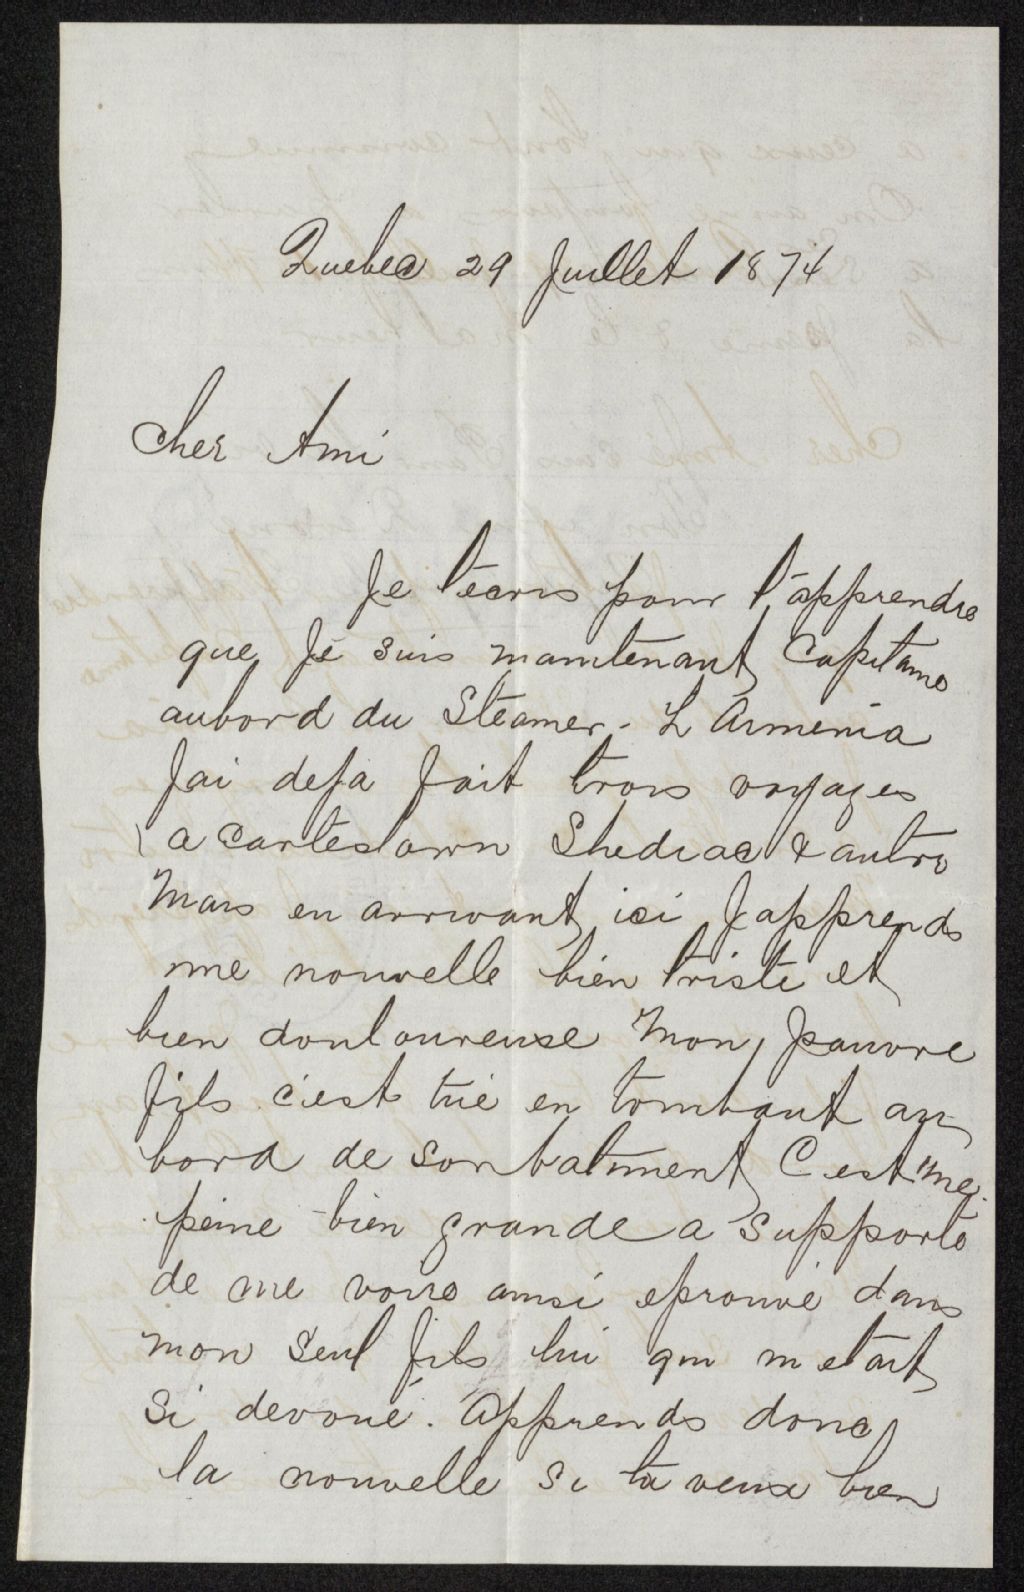 Quebec 29 Juillet 1874
Cher Ami
Je t'ecris pour t'apprendre
que Je suis maintenant Capitaine
aubord du Steamer - L Armenia
Jai deja fait trois voyages
a Shediac & autre
Mais en arrivant ici J'apprends
une nouvelle bien triste et
bien douloureuse Mon pauvre
fils c'est tué en tombant au
bord de son batiment C est une
peine bien grande a supporte
de me voire ainsi eprouvé dans
mon seul fils lui qui m etait
si devoué. Apprends donc
la nouvelle si tu veux bien